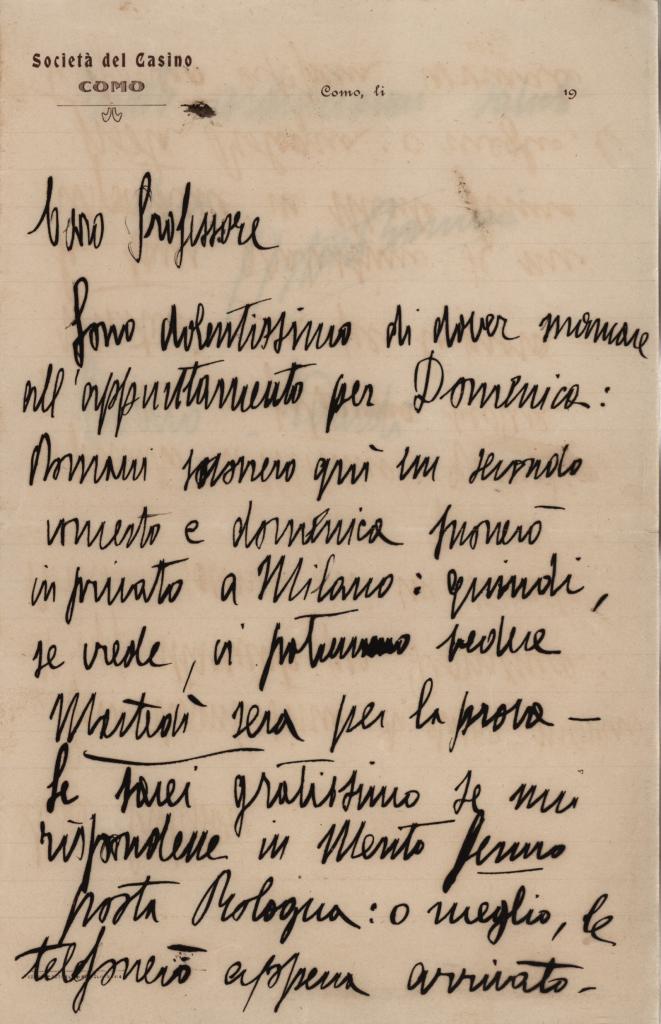 Società del Casino
COMO
Como, li 19
Caro Professore
Sono dolentissimo di dover mancare
all'appuntamento per Domenica:
Domani suonerò quì un secondo
concerto e domenica suonerò
in privato a Milano: quindi,
se crede, ci potremmo vedere
Martedì sera per la prova —
Le sarei gratissimo se mi
rispondesse in merito fermo
posta Bologna: o meglio, le
telefonerò appena arrivato -